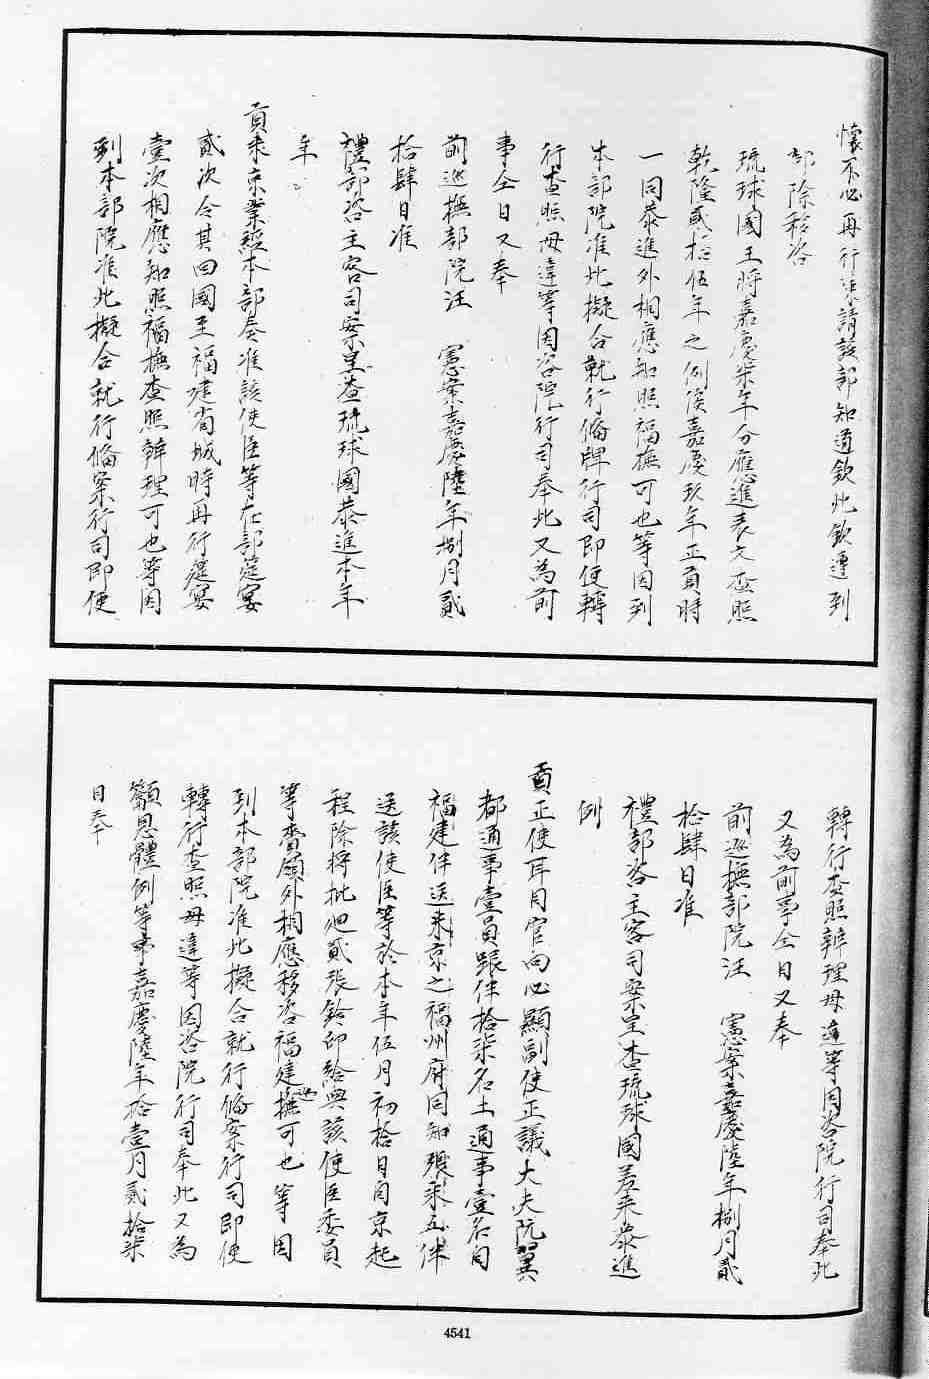 懷不必再行奏請該部知道欽此欽遵到
部除移咨
琉球國王將嘉慶柒年分應進表文查照
乾隆貳拾伍年之例俟嘉慶玖年正貢時
一同恭進外相應知照福撫可也等因到
本部院准此擬合就行備牌行司即便轉
行查照毋違等因咨院行司奉此又為前
事仝日又奉
前巡撫部院汪　憲案嘉慶陸年捌月貳
拾肆日准
禮部咨主客司案呈查琉球國恭進本年
年
貢來京業經本部奏准該使臣等在部筵宴
貳次令其回國至福建省城時再行筵宴
壹次相應知照福撫查照辦理可也等因
到本部院准此擬合就行備案行司即便
轉行查照辦理毋違等因咨院行司奉此
又為前事仝日又奉
前巡撫部院汪　憲案嘉慶陸年捌月貳
拾肆日准
禮部咨主客司案呈查琉球國差來恭進
例
貢正使耳目官向必顯副使正議大夫阮翼
都通事壹員跟伴拾柒名土通事壹名自
福建伴送來京之福州府同知張采五伴
送該使臣等於本年伍月初拾日自京起
程除將批迴貳張鈐印給與該使臣委員
等齎領外相應移咨福建巡撫可也等因
到本部院准此擬合就行備案行司即便
轉行查照毋違等因咨院行司奉此又為
籲恩體例等事嘉慶陸年拾壹月貳拾柒
日奉
4541